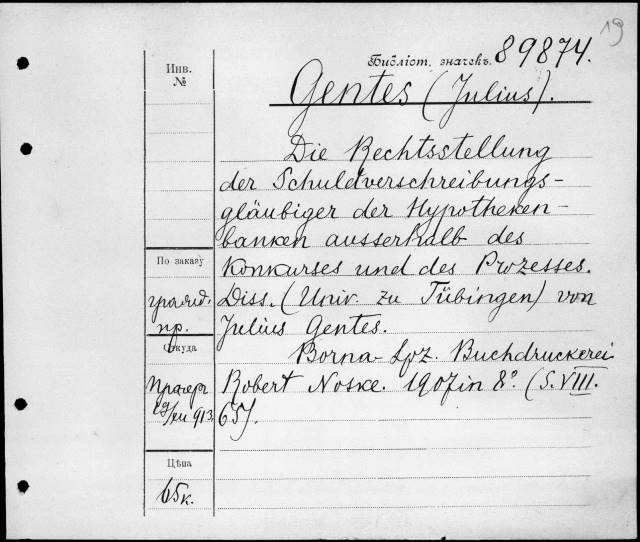 19
Библіот. значекъ. 89874.
Инв.
№
Gentes (Julius).
Die Rechtsstellung
der Schuldverschreibungs-
gläubiger der Hypotheken-
banken ausserhalb des
Konkurses und des Prozesses.
Diss. (Univ. zu Tübingen) von
Julius Gentes.
Borna-Lpz. Buchdruckerei
Robert Noske. 1907 in 8° (S. VIII.
65).
По заказу
пр.
Откуда
913.
Цѣна
65 к.